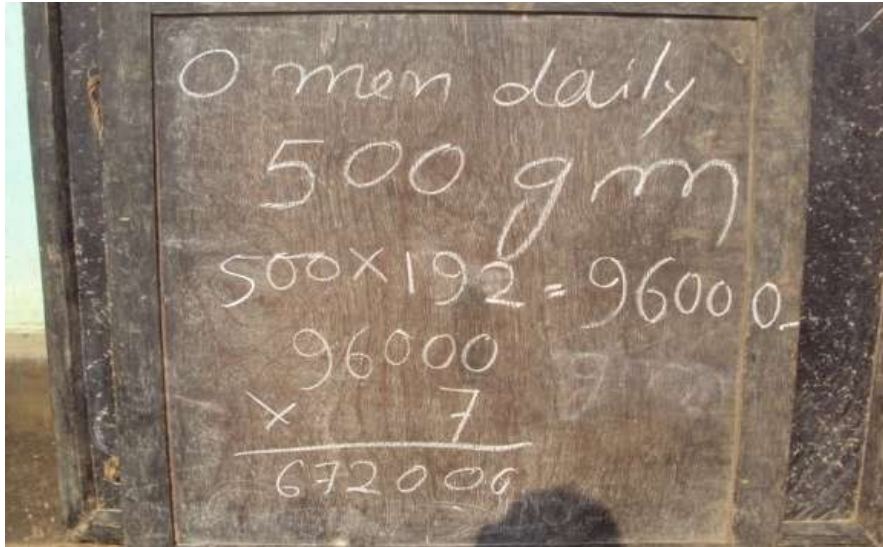 O men daily
500 gm
500×192=96000
96000
× 7
672000